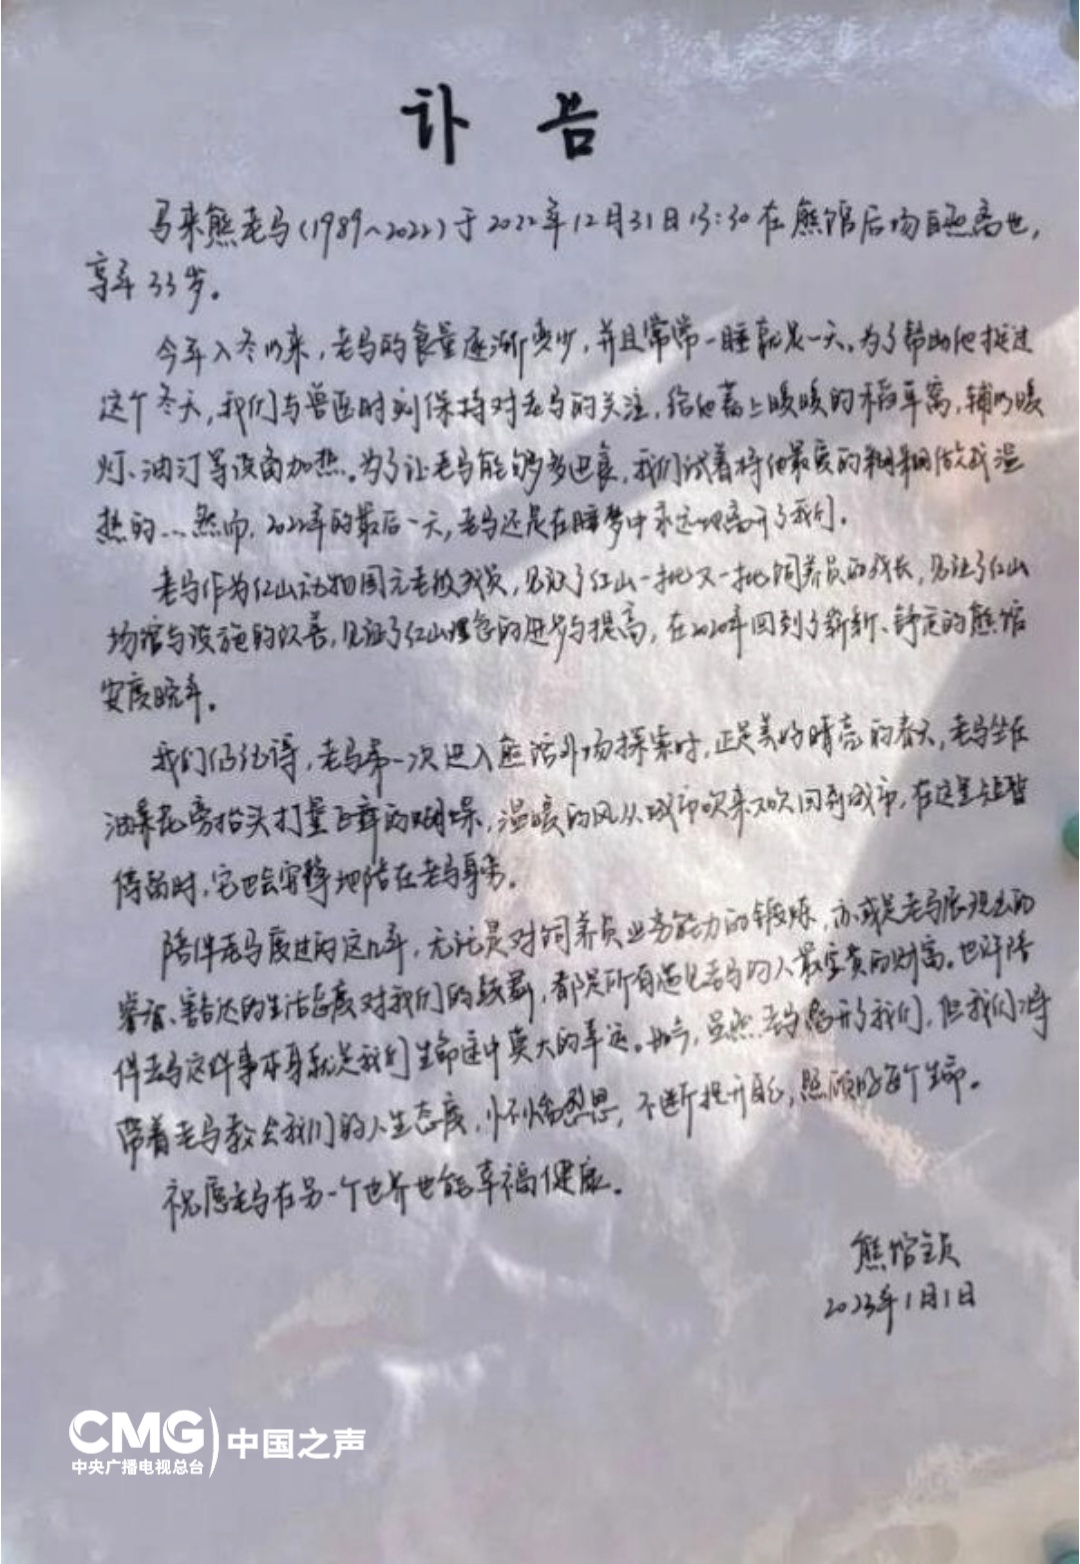 讣告
马来熊老马(1989~2022)于2022年12月31日13:30在熊馆后场自然离世,
享年33岁。
今年入冬以来,老马的食量逐渐变少,并且常常一睡就是一天。为了帮助他挺过
这个冬天,我们与兽医时刻保持对老马的关注,给他蓄上暖暖的稻草窝,辅以暖
灯、油汀等设备加热。为了让老马能够多进食,我们试着将他最爱的糊糊做成温
热的...然而,2022年的最后一天,老马还是在睡梦中永远地离开了我们。
老马作为红山动物园元老级成员,见证了红山一批又一批饲养员的成长,见证了红山
场馆与设施的改善,见证了红山理念的进步与提高,在2020年回到了崭新、舒适的熊馆
安度晚年。
我们仍记得,老马第一次进入熊馆外场探索时,正是美好晴亮的春天,老马坐在
油菜花旁抬头打量飞舞的蝴蝶,温暖的风从城市吹来又吹回到城市,在这里短暂
停留时,它也会安静地陪在老马身旁。
陪伴老马度过的这几年,无论是对饲养员业务能力的锻炼,亦或是老马展现出的
睿智、豁达的生活态度对我们的鼓舞,都是所有遇见老马的人最宝贵的财富。也许陪
伴老马这件事本身就是我们生命途中莫大的幸运。如今,虽然老马离开了我们,但我们将
带着老马教会我们的人生态度,心怀思,不断提升自己,照顾好每个生命。
祝愿老马在另一个世界也能幸福健康。
熊馆全员
2023年1月1日
CMG 中国之声
中央广播电视总台